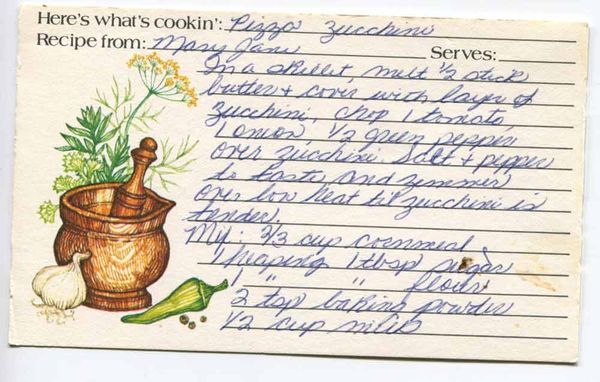 Here's what's cookin': Pizza Zucchini
Recipe from: Mary Jane Serves:
In a skillet, melt 1/2 stick
butter + cover with layer of
zucchini, chop 1 tomato,
1 onion 1/2 green pepper
over zucchini. Salt + pepper
to taste and simmer
over low heat til zucchini is
tender.
Mix: 2/3 cup cornmeal
1 heaping 1 tbsp sugar
1 " " flour
2 tsp baking powder
1/2 cup milk